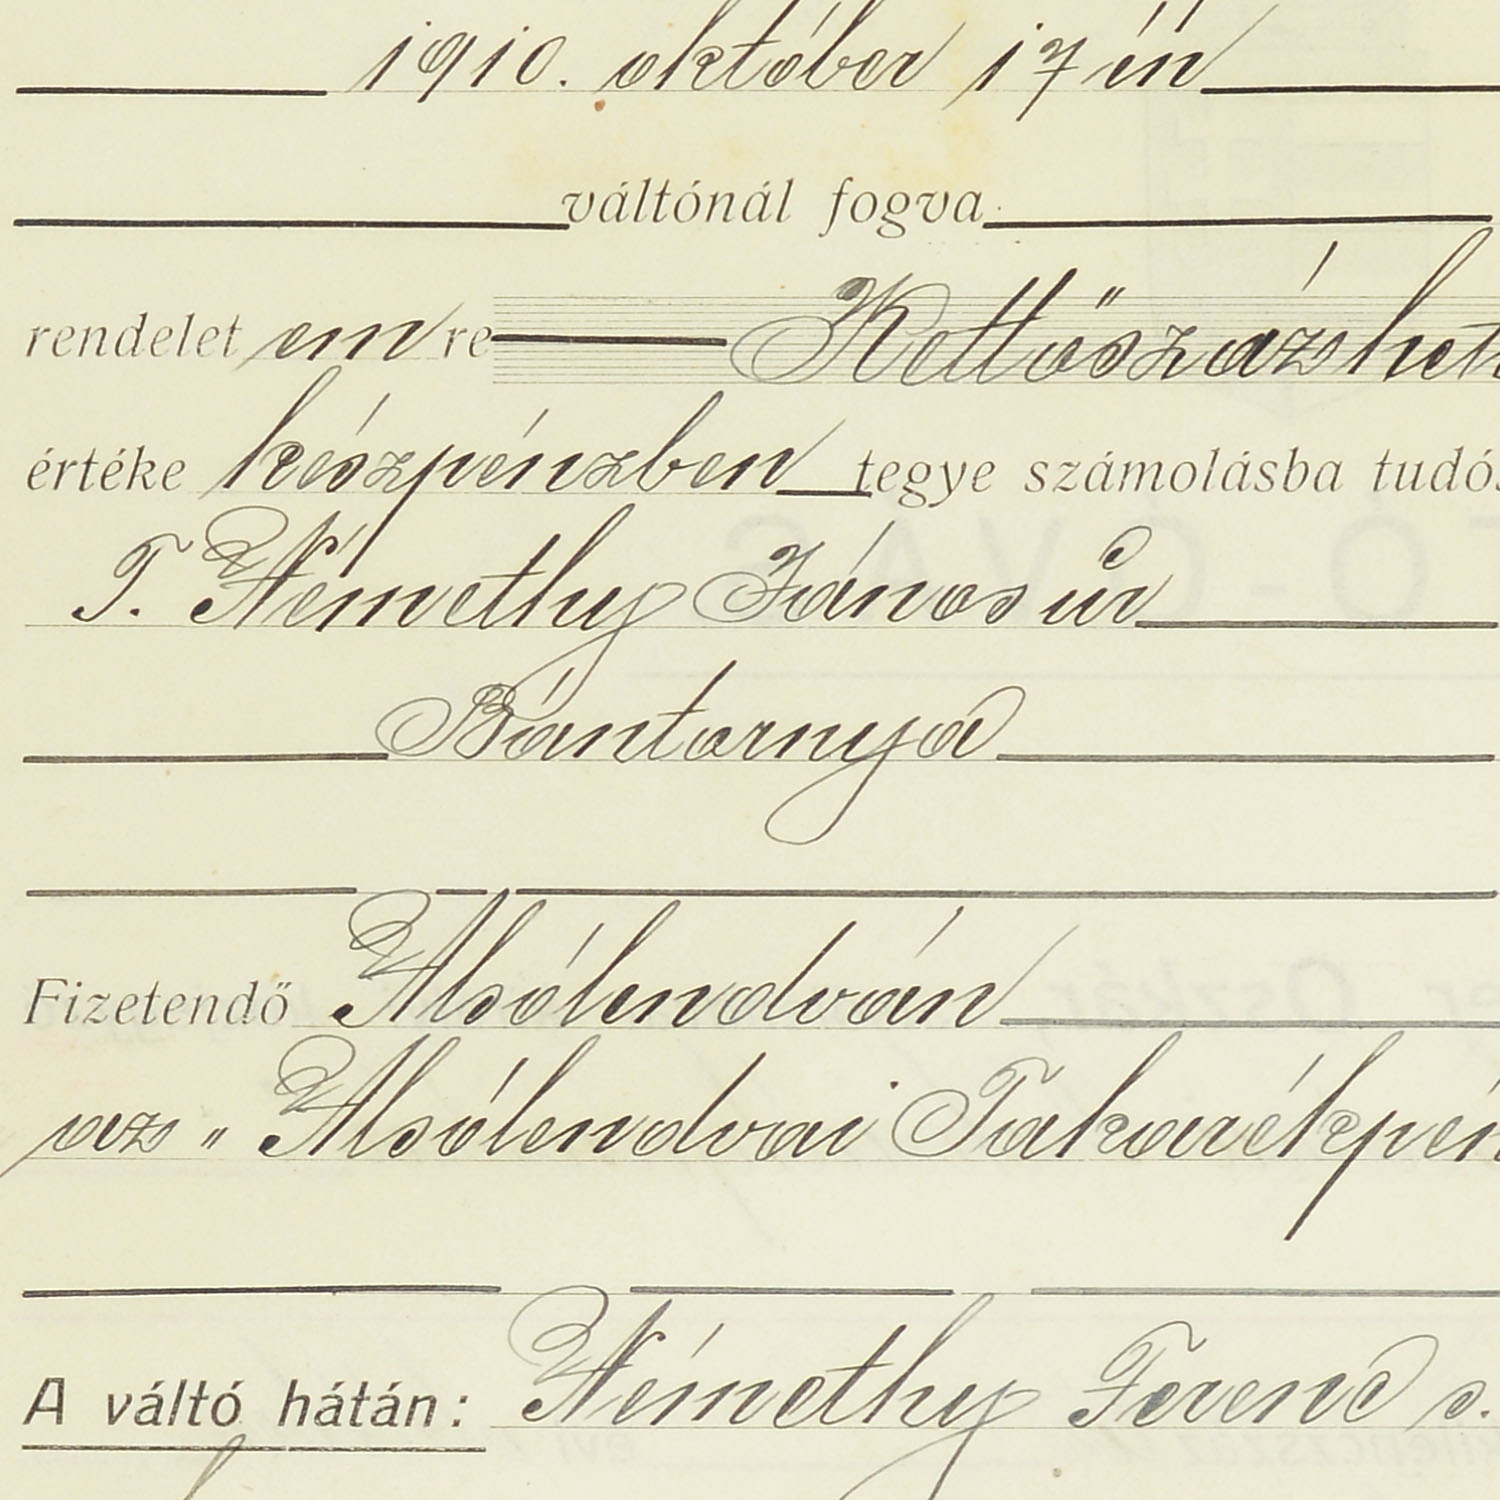 1910. október 17 én
váltónál fogva
rendelet em re Kettőszázhet
értéke készpénzben tegye számolásba tudó
T. Némethy János úr
Bántornya
Fizetendő Alsólendván
az „Alsólendvai Takarékpén
A váltó hátán: Némethy Ferenc s.